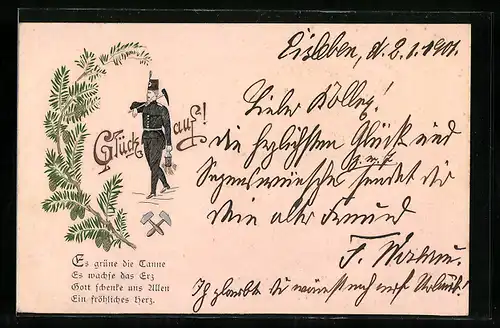 Eisleben, d. 2.1.1901.
Glück auf!
Lieber Kolleg!
Die herzlichsten Glück und
Segenswünsche sendet dir
Dein alter Freund
F.
Ich glaubte Du wärest noch auf Urlaub!
Es grüne die Tanne
Es wachse das Erz
Gott schenke uns Allen
Ein fröhliches Herz.